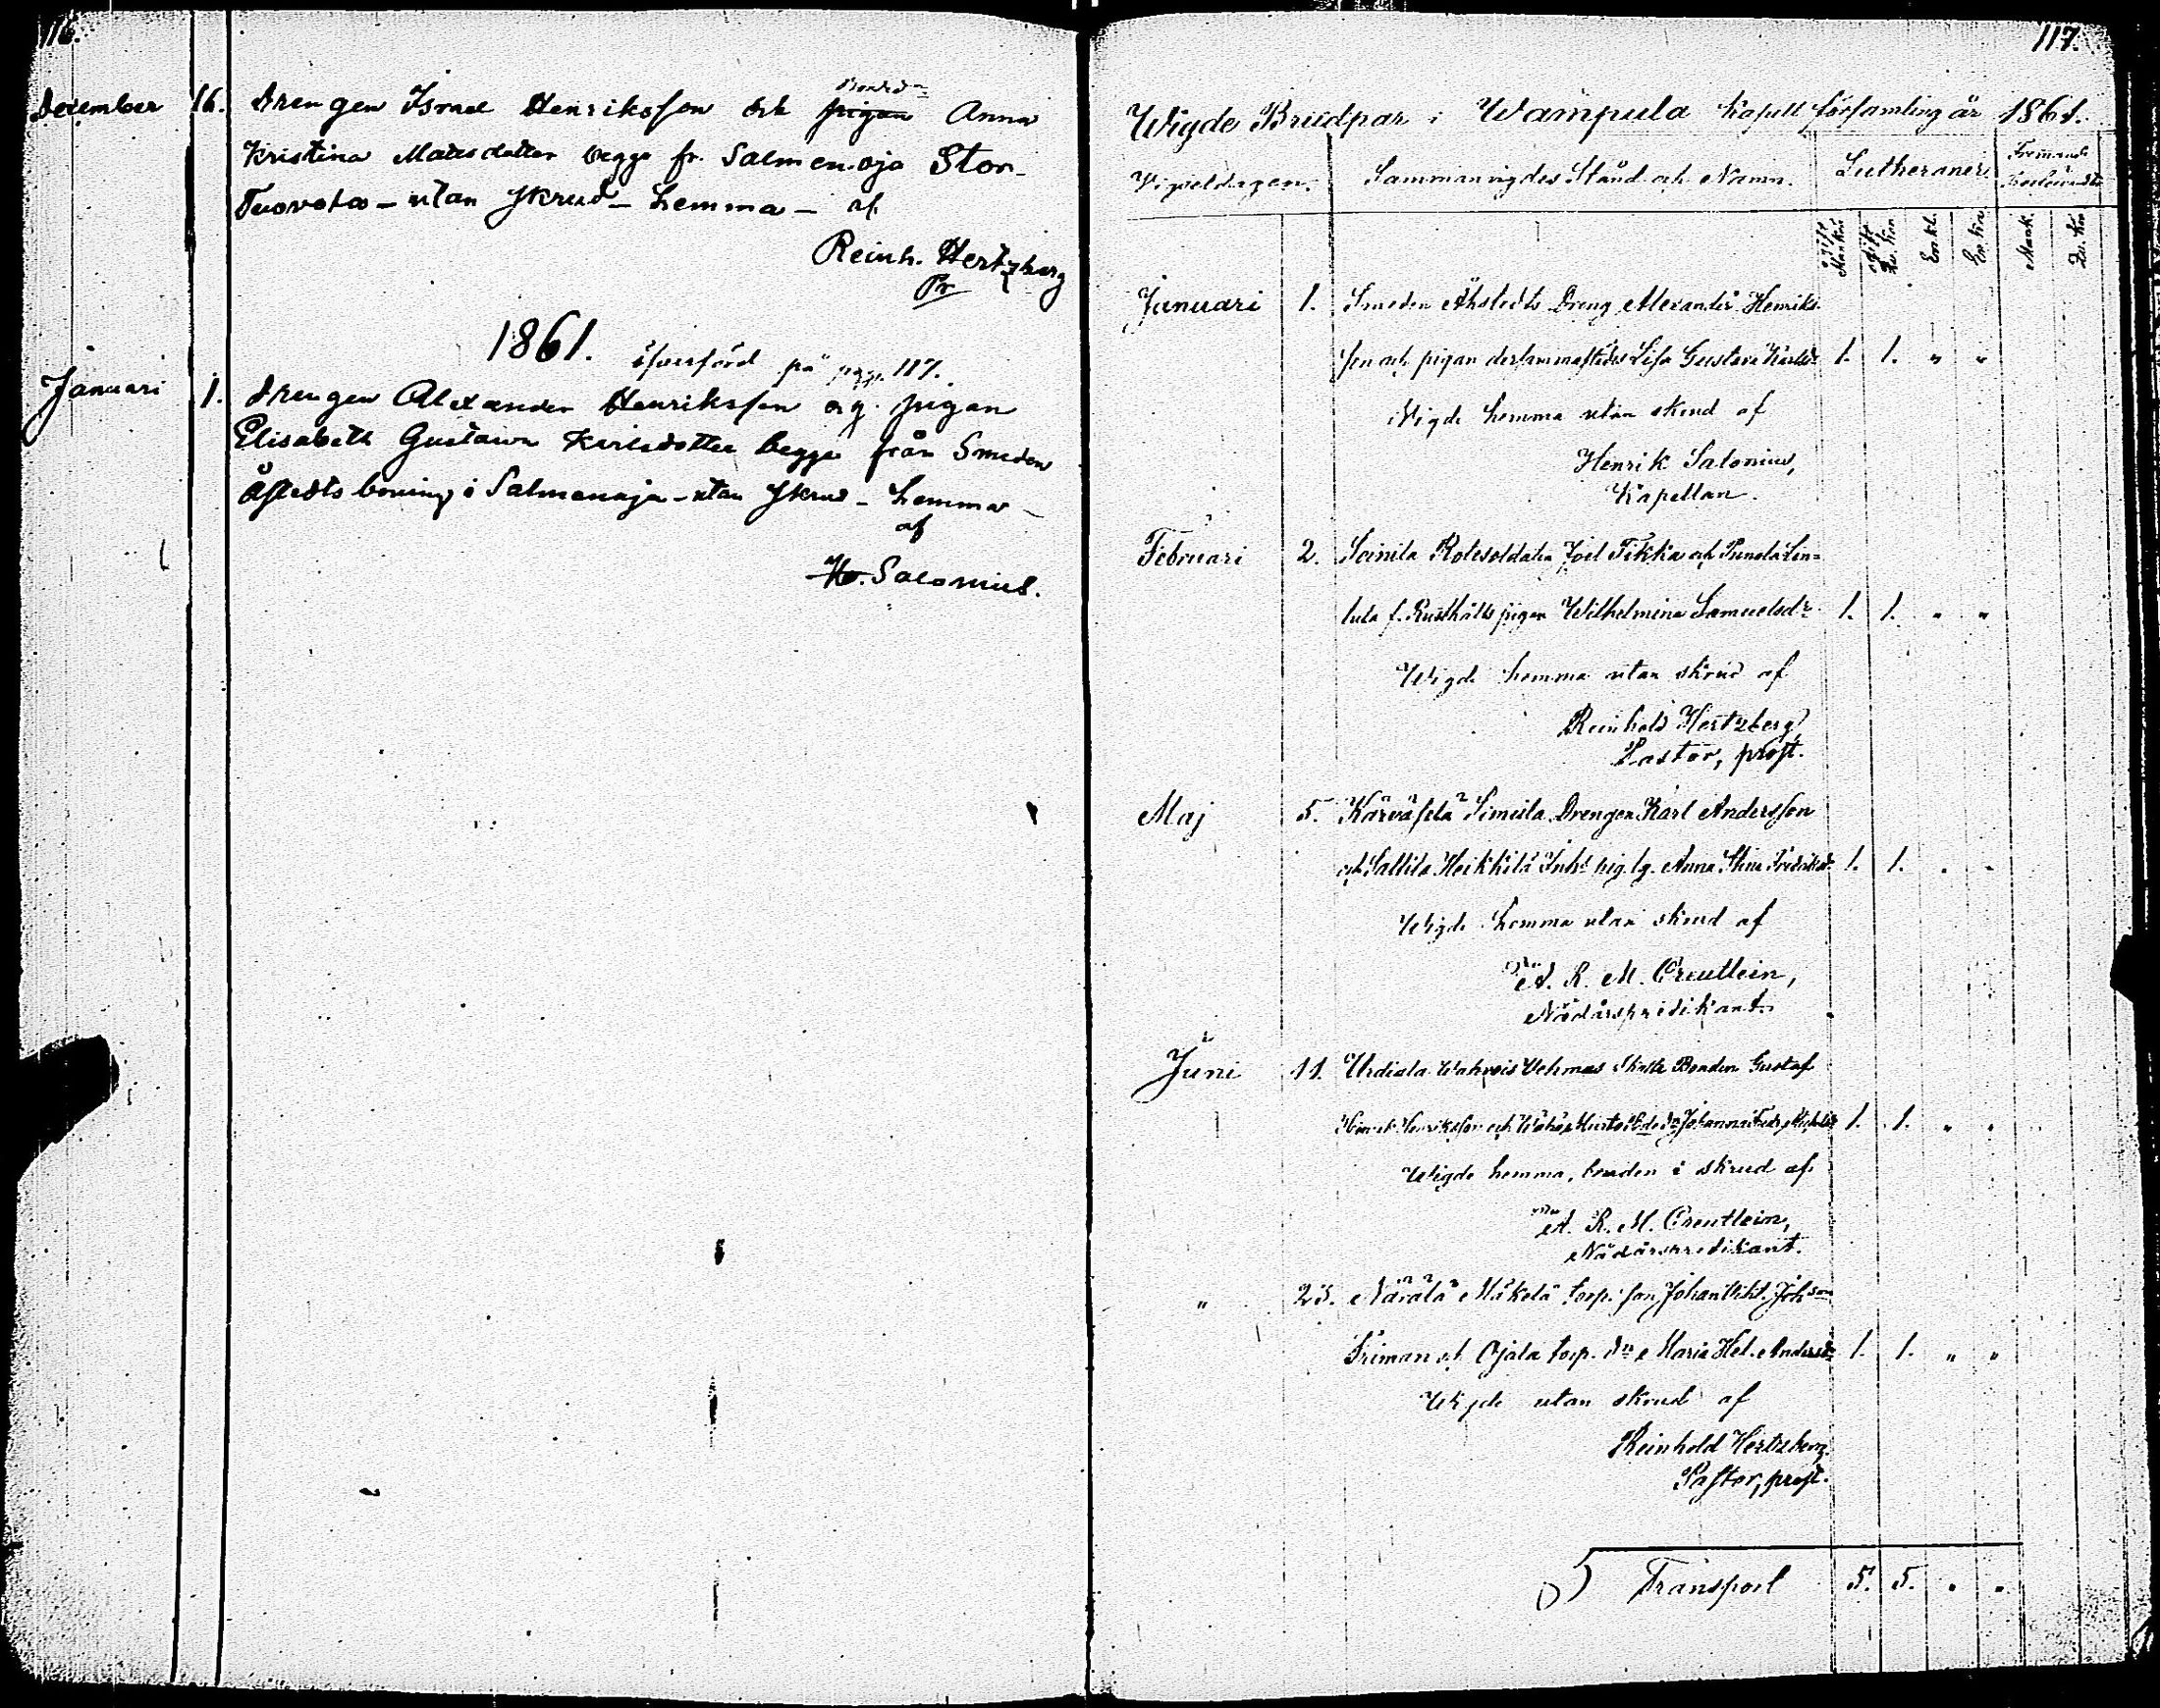 116.
December 16. Drengen Israel Henriksson och pigan Anna
Kristina Matsdotter begge fr. Salmenoja Stor-
Tuovola – utan skrud – hemma – af
Reinh. Hertzberg
Pr
1861.
öfverförd på pag. 117.
Januari 1. Drengen Alexander Henriksson og pigan
Elisabeth Gustava Karlsdotter begge från Smeden
Åstedts boning i Salmenoja – utan skrud – hemma –
af
Salonius.
117.
Wigde Brudpar i Wampula Kapell församling år 1861.
Vigseldagen. Sammanvigdes Stånd och Namn. Lutheraner. Främmande
Januari 1. Smeden Åhstedts Dreng Alexander Henriks
son och pigan dersammastädes Lisa Gustava Karlsdr 1. 1. " "
Wigde hemma utan skrud af
Henrik Salonius,
Kapellan.
Februari 2. Soinila Rotesoldaten Joel Tikka och Punola
f. Rusthålls pigan Wilhelmina Samuelsdr 1. 1. " "
Wigde hemma utan skrud af
Reinhold Hertzberg,
Pastor, prost.
Maj 5. Simula Drengen Karl Andersson
och Sallila Heikkilä Inhs pig. Anna Stina 1. 1. " "
Wigde hemma utan skrud af
A. R. M. Creutlein,
Nådårspredikant.
Juni 11. Urdiala Wahrois Vehmas Skatte Bonden Gustaf
Henriksson och Johanna 1. 1. " "
Wigde hemma, bruden i skrud af
A. R. M. Creutlein,
Nådårspredikant.
" 23. Närälä Mäkelä torp. son Johan Joh.son
Friman och Ojala torp. dr Maria Hel. Andersdr 1. 1. " "
Wigde utan skrud af
Reinhold Hertzberg.
Pastor, prost.
5 Transport 5. 5. " "